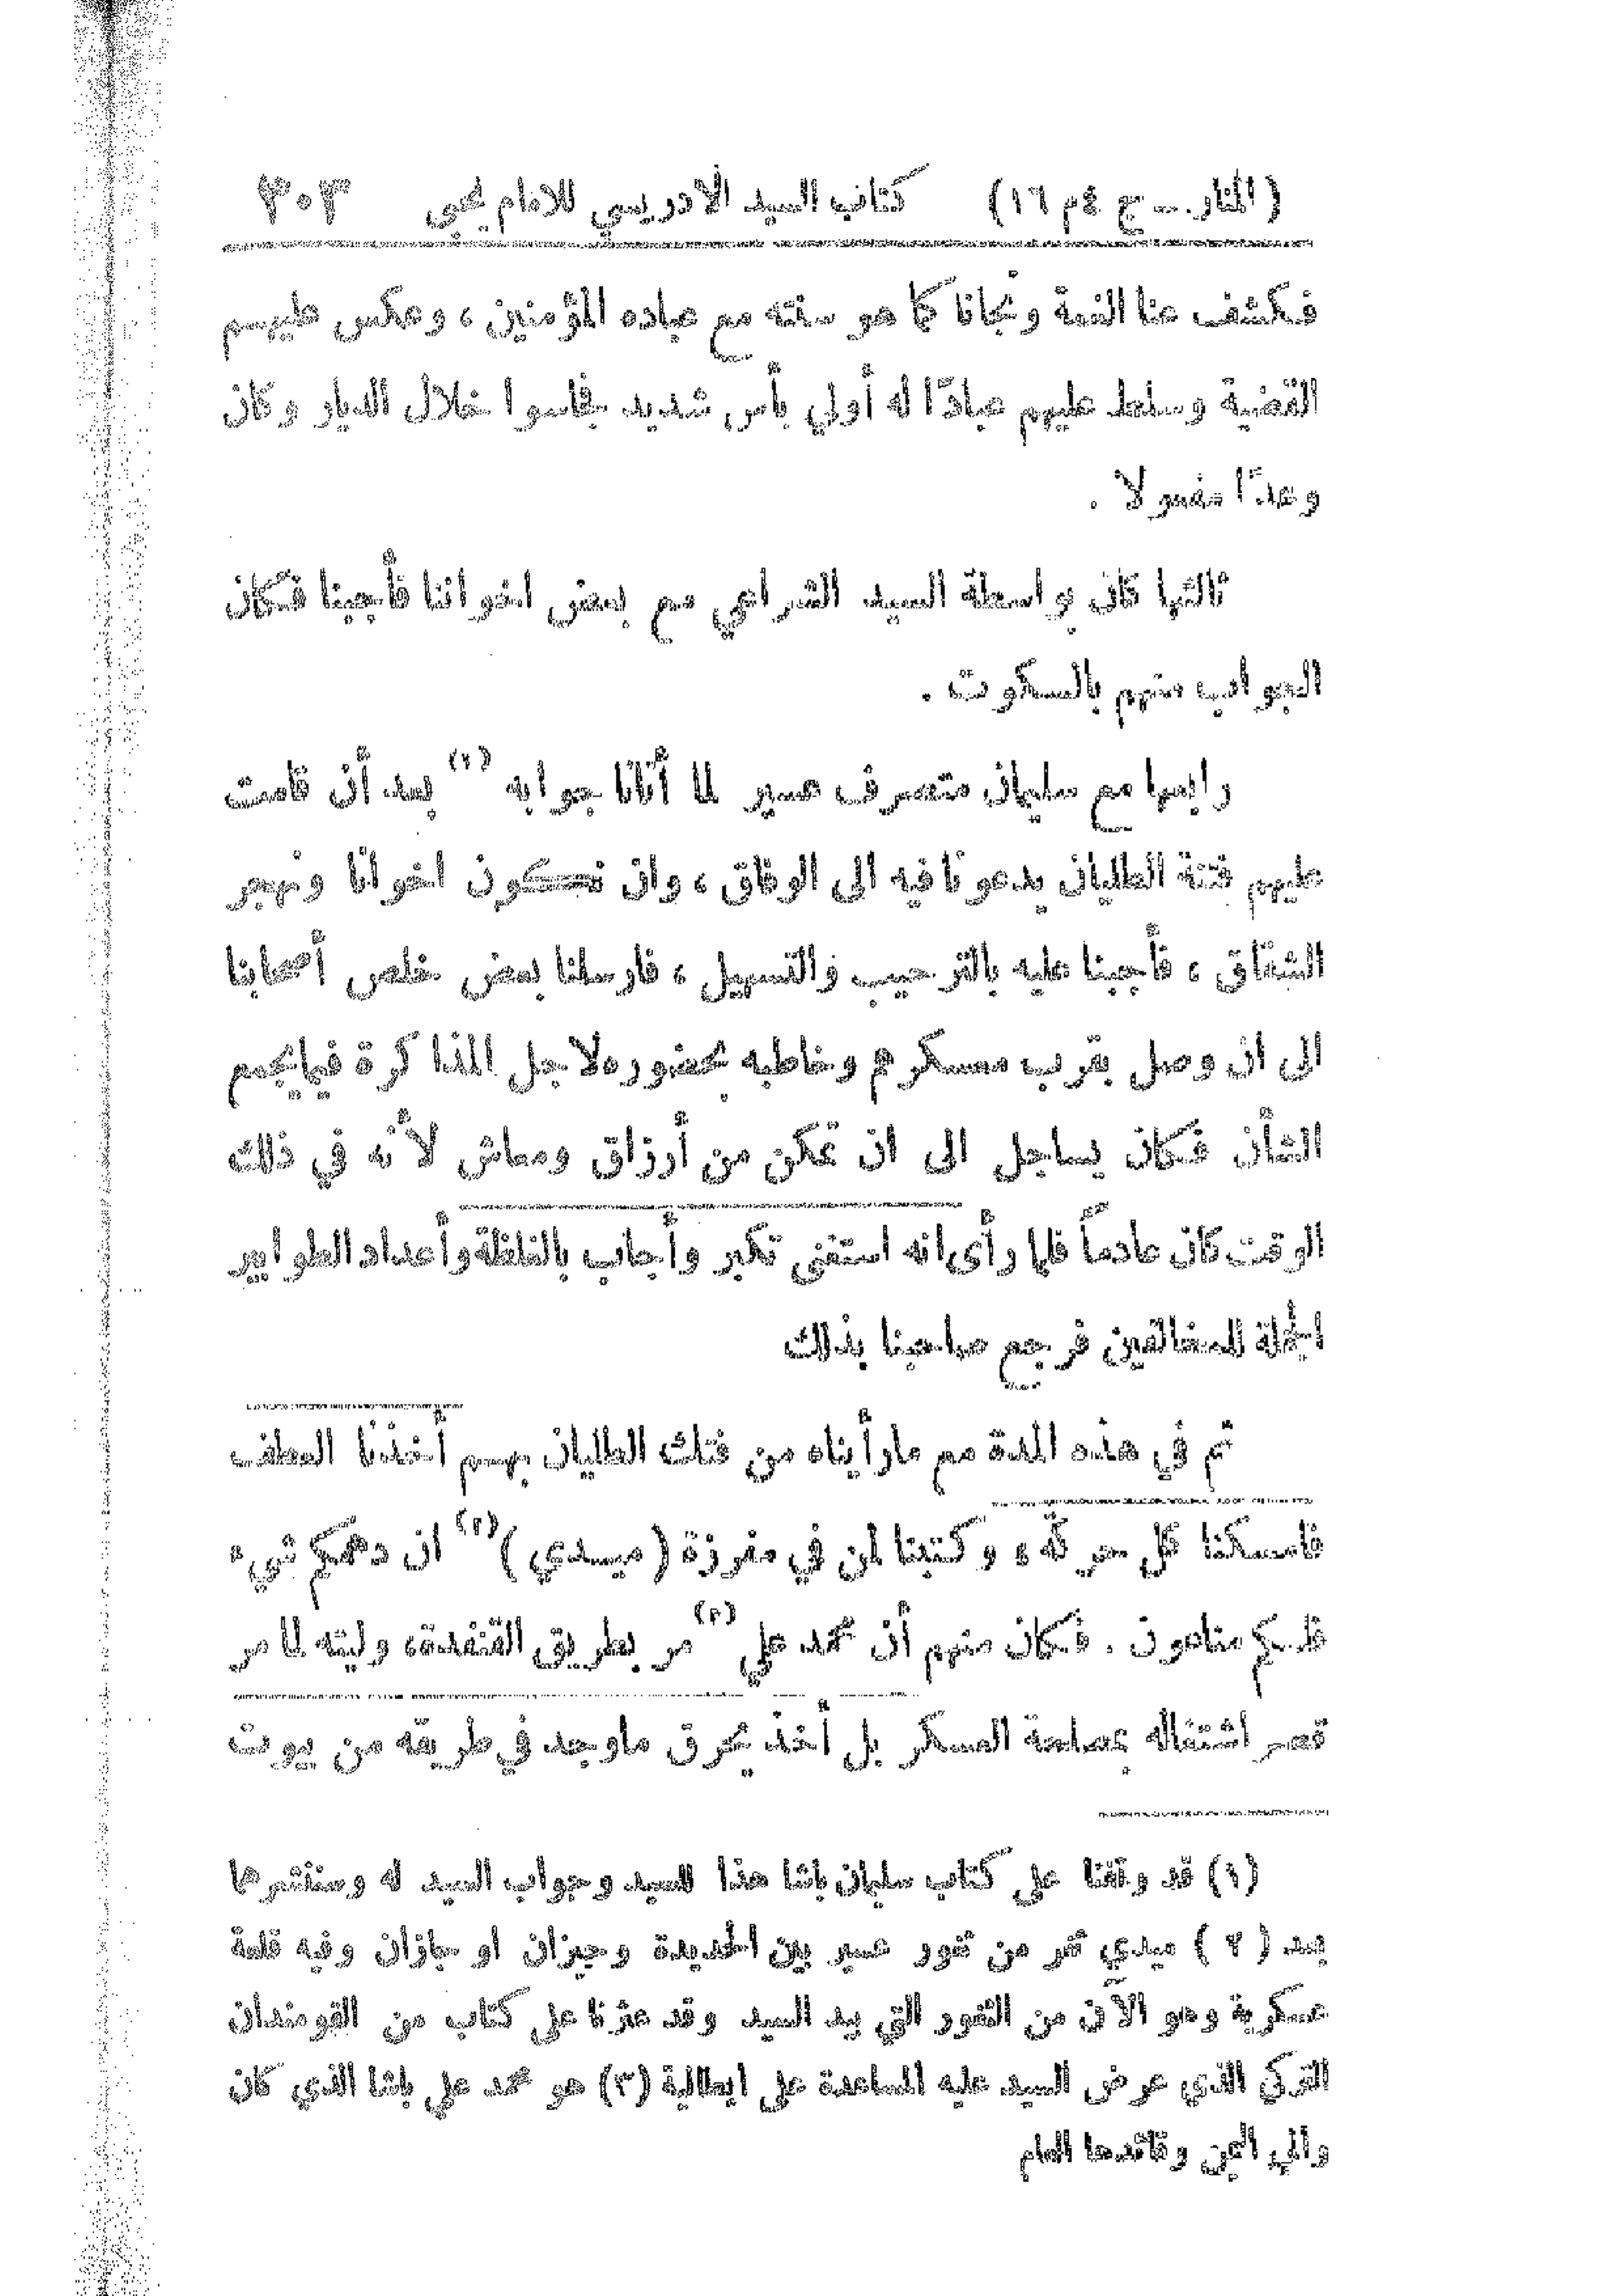 (المنار ــ ج ٤ م ١٦) كتاب السيد الادريسي للامام يحيى ٣٠٣
فكشف عنا الغمة ونجانا كما هو سنته مع عباده المؤمنين ، وعكس عليهم
القضية وسلط عليهم عبادًا له أولي بأس شديد فجاسوا خلال الديار وكان
وعدًا مفعولا .
ثالثها كان بواسطة السيد الشراعي مع بعض اخواننا فأجبنا فكان
الجواب منهم بالسكوت .
رابعها مع سليمان متصرف عسير لما أتانا جوابه (١) بعد أن قامت
عليهم فتنة الطليان يدعونا فيه الى الوفاق ، وان نكون اخوانا ونهجر
الشقاق ، فأجبنا عليه بالترحيب والتسهيل ، فارسلنا بعض خلص أصحابنا
الى ان وصل بقرب معسكرهم وخاطبه بحضوره لاجل المذاكرة فيما يجمع
الشأن فكان يساجل الى ان تمكن من أرزاق ومعاش لأنه في ذلك
الوقت كان عادمًا فلما رأى انه استغنى تكبر وأجاب بالغلظة وأعداد الطوابير
الجمة للمخالفين فرجع صاحبنا بذلك
ثم في هذه المدة مع مارأيناه من فتك الطليان بهم أخذنا العطف
فامسكنا كل حركة ، وكتبنا لمن في مفرزة (ميدي) (٢) ان دهمكم شيء
فلسكم مناعون . فكان منهم أن محمد علي (٣) مر بطريق القنفدة، وليته لما مر
قصر اشتغاله بمصلحة العسكر بل أخذ يحرق ماوجد في طريقه من بيوت
(١) قد وقفنا على كتاب سليمان باشا هذا للسيد وجواب السيد له وسننشرهما
بعد (٢) ميدي ثغر من ثغور عسير بين الحديدة وجيزان او جازان وفيه قلعة
عسكرية وهو الآن من الثغور التي بيد السيد وقد عثرنا على كتاب من القومندان
التركي الذي عرض السيد عليه المساعدة على ايطالية (٣) هو محمد علي باشا الذي كان
والي اليمن وقائدها العام